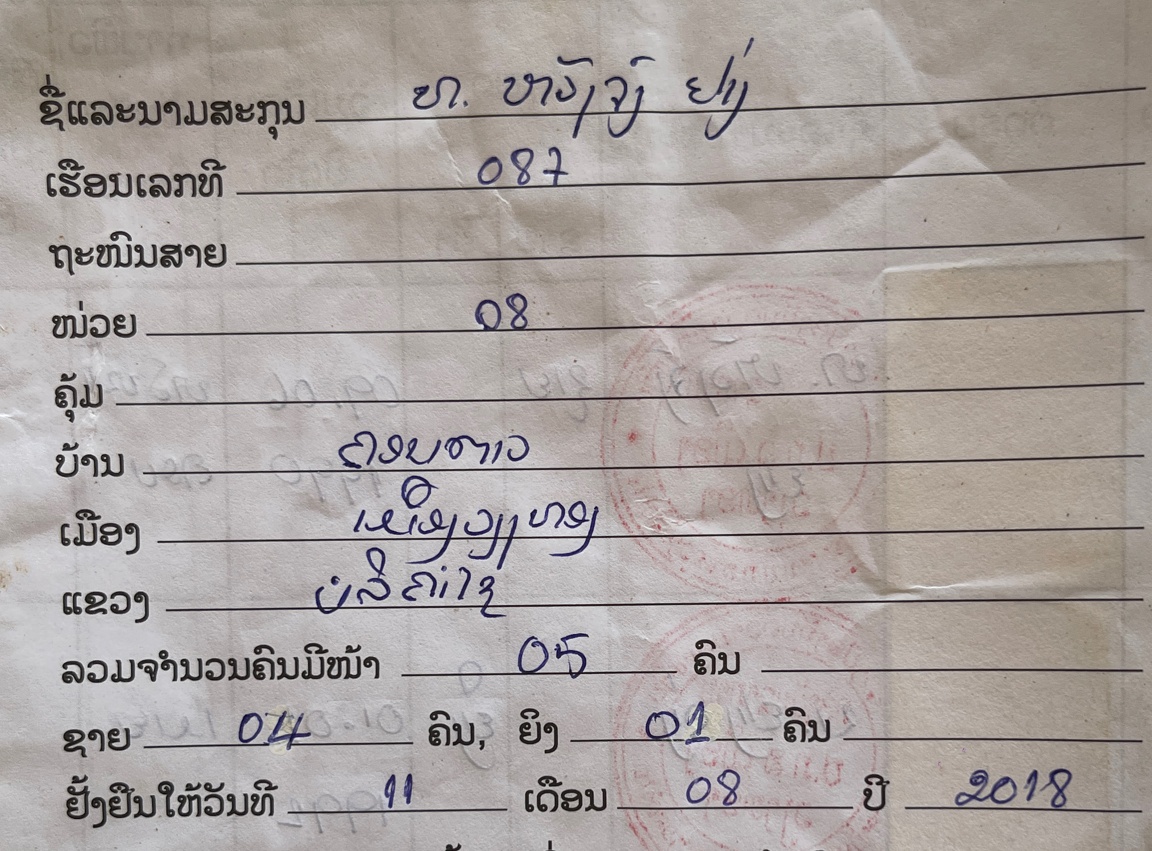 ຊື່ແລະນາມສະກຸນ ທ. ຢ່າງ
ເຮືອນເລກທີ 087
ຖະໜົນສາຍ
ໜ່ວຍ 08
ຄຸ້ມ
ບ້ານ
ເມືອງ
ແຂວງ ບໍລິຄຳໄຊ
ລວມຈຳນວນຄົນມີໜ້າ 05 ຄົນ
ຊາຍ 04 ຄົນ, ຍິງ 01 ຄົນ
ຢັ້ງຢືນໃຫ້ວັນທີ 11 ເດືອນ 08 ປີ 2018